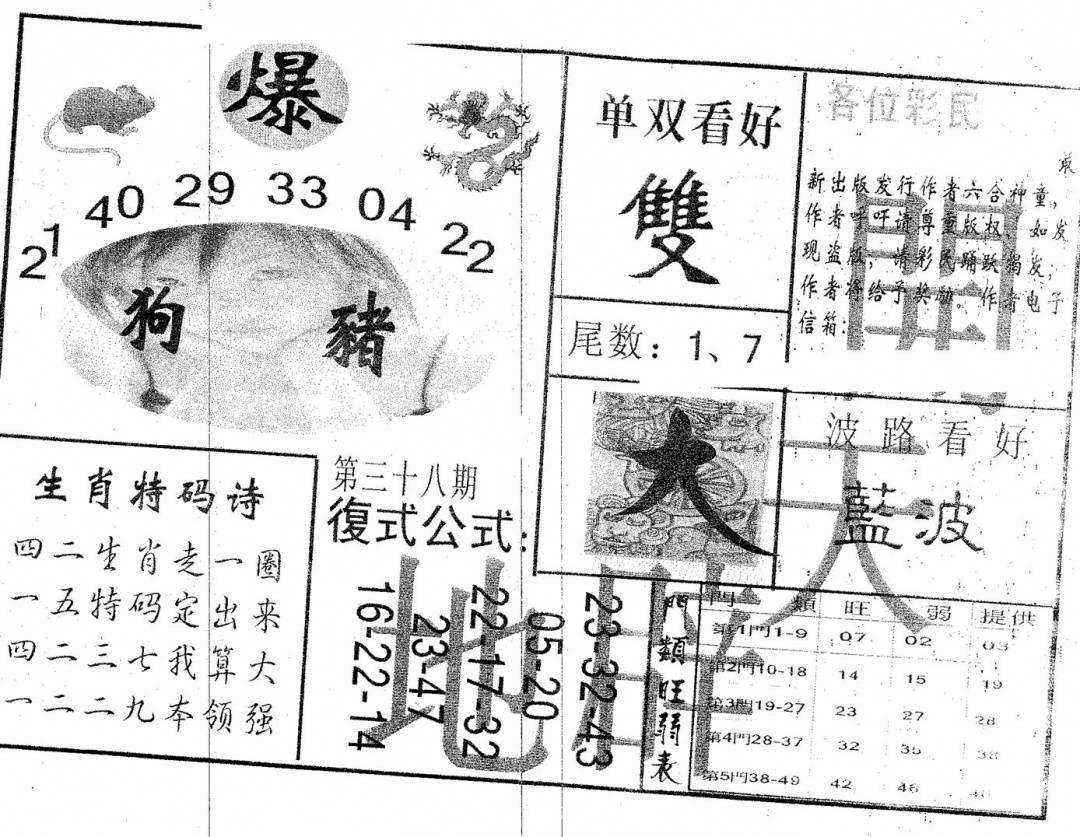 爆
21 40 29 33 04 22
狗 豬
单双看好
雙
尾数：1、7
各位彩民
新出版发行作者六合神童，
作者呼吁请尊重版权，如发
现盗版，请彩民踊跃揭发，
作者将给予奖励。作者电子
信箱：
大
波路看好
藍波
生肖特码诗
四二生肖走一圈
一五特码定出来
四二三七我算大
一二二九本领强
第三十八期
復式公式：
16-22-14
23-47
22-17-32
05-20
23-32-43
門類旺弱表
門類 旺 弱 提供
第1門1-9 07 02 03
第2門10-18 14 15 19
第3門19-27 23 27 28
第4門28-37 32 35 38
第5門38-49 42 46